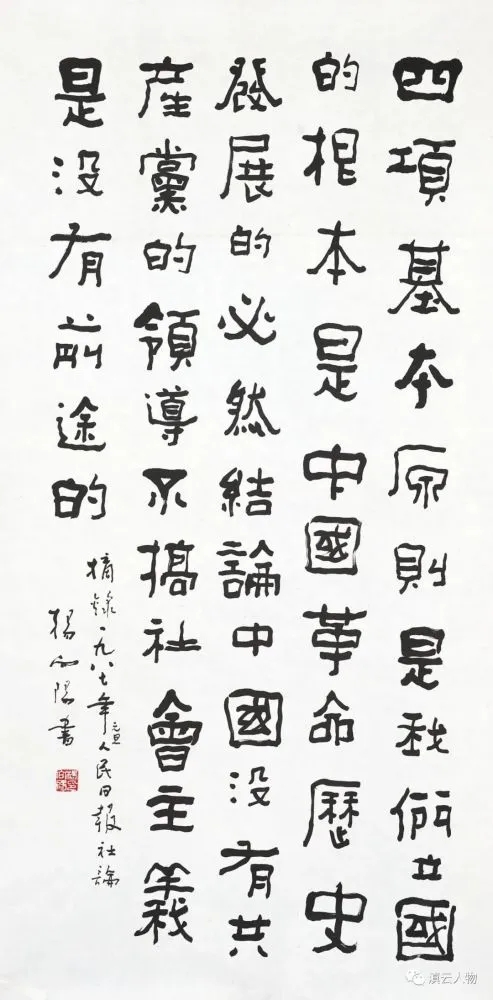 四項基本原則是我們立國
的根本是中國革命歷史
發展的必然結論中國没有共
産黨的領導不搞社會主義
是没有前途的
摘錄一九八七年元旦人民日報社論
楊陽書
滇云人物